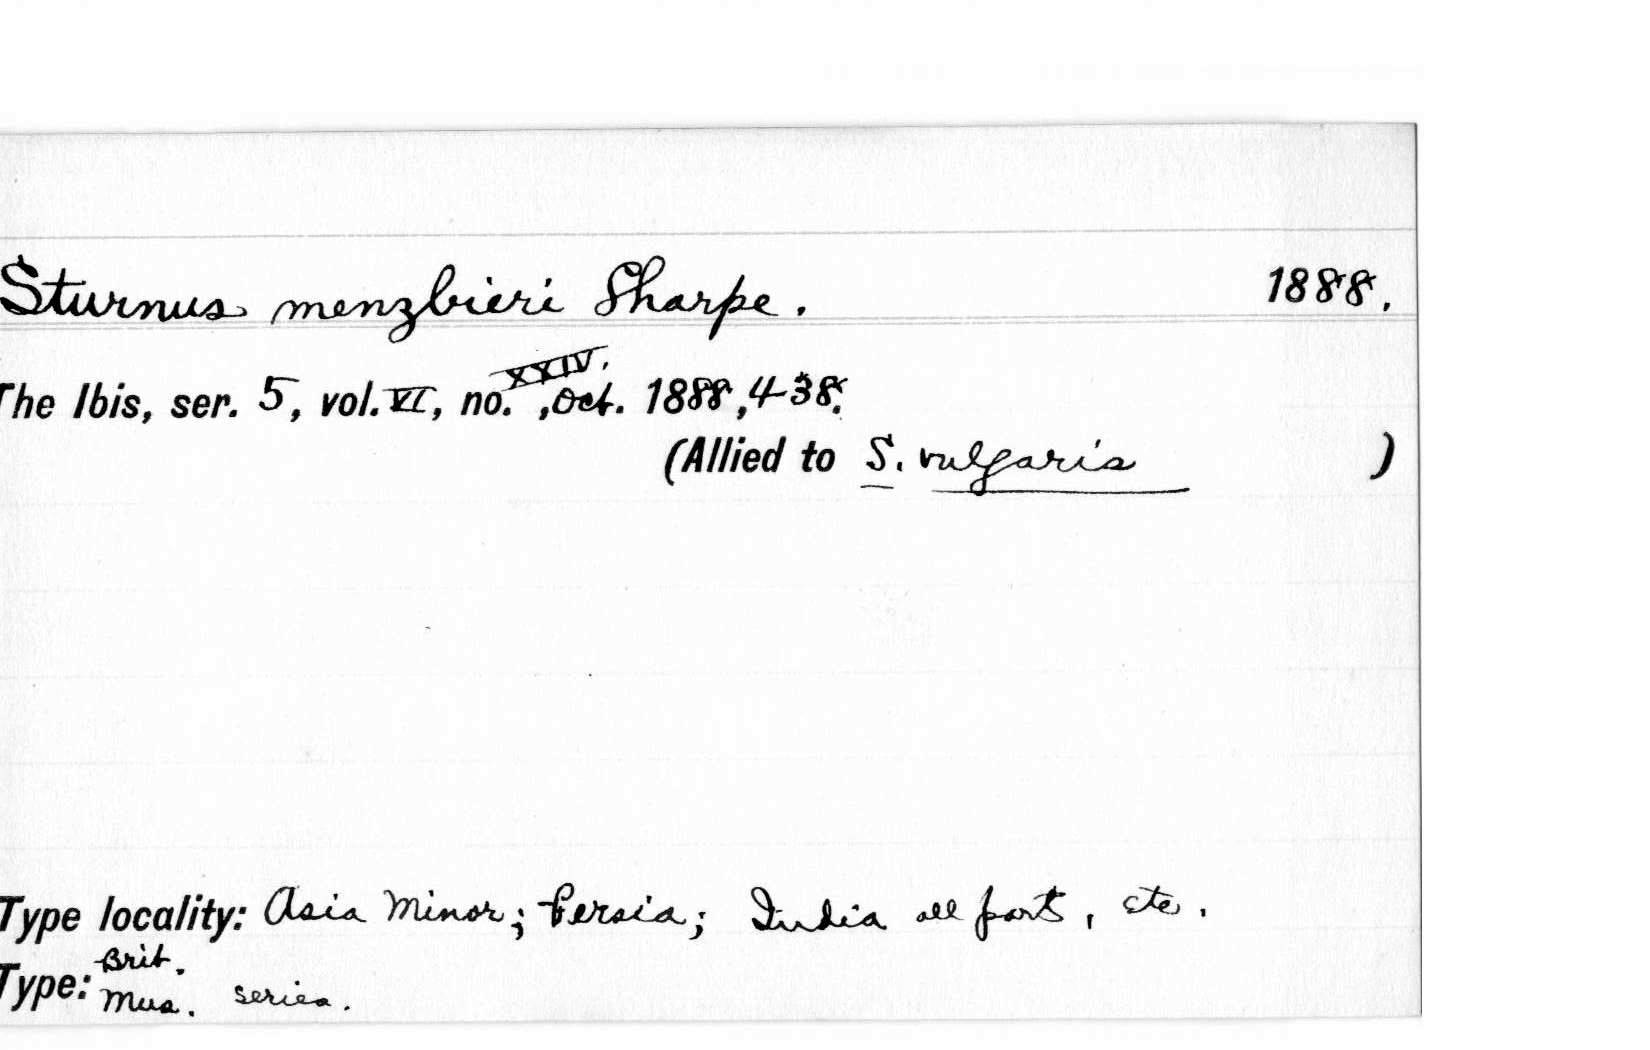 Sturnus menzbieri Sharpe. 1888.
The Ibis, ser. 5, vol. VI, no. XXIV., Oct. 1888, 438.
(Allied to S. vulgaris )
Type locality: Asia Minor; Persia; India all parts, etc.
Type: Brit. Mus. series.